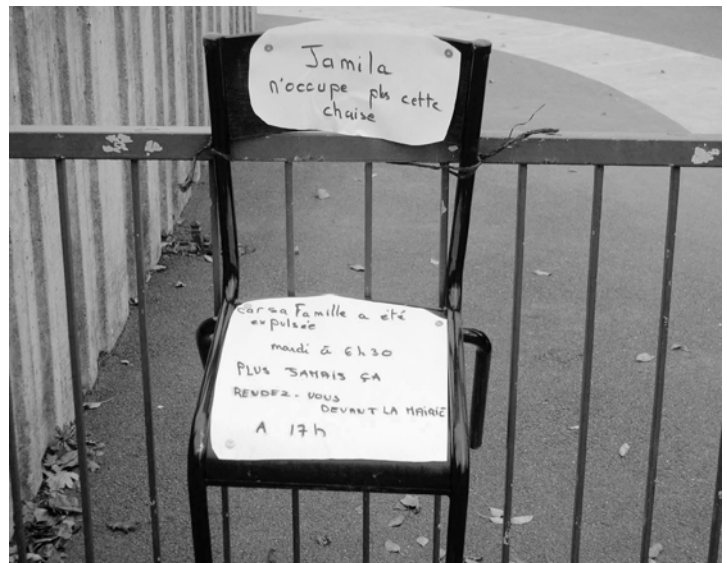 Jamila
n'occupe pls cette
chaise
car sa Famille a été
expulsée
mardi à 6h30
PLUS JAMAIS ÇA
RENDEZ-VOUS
DEVANT LA MAIRIE
A 17h